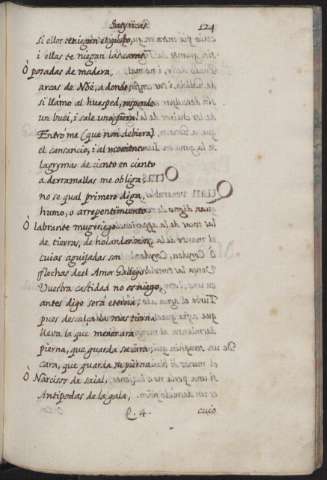 Satyricas. 124
si ellos te niegan el gusto,
i ellas te niegan la carne.
Ò posadas de madera,
arcas de Noè, a donde
si llamo al huesped, responde
un buei, i sale una fiera!
Entròme (que non debiera)
el cansancio, i al momento
lagrymas de ciento en ciento
a derramallas me obliga,
no se qual primero diga,
humo, o arrepentimiento.
Ò labrante mugeriego
de tierras, de
cuias aguijadas son
flechas del Amor Gallego
Vuestra castidad no niego,
antes digo serà eterna;
pues descalça la mas tierna
lleva la que menos ara
pierna, que guarda su cara,
cara, que guarda su pierna
Ò Narcisos de saial,
Antipodas de la gala,
R. 4. cuio